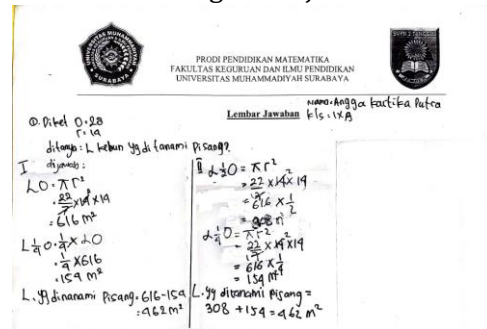 UNIVERSITAS MUHAMMADIYAH
SURABAYA
PRODI PENDIDIKAN MATEMATIKA
FAKULTAS KEGURUAN DAN ILMU PENDIDIKAN
UNIVERSITAS MUHAMMADIYAH SURABAYA
Lembar Jawaban
Nama: Angga Kartika Putra
kls: IXA
D. Diket O = 28
r = 14
ditanya: L kebun yg di tanami pisang?
I dijawab:
LO = πr²
= 22/7 x 14 x 14
= 616 m²
L 1/4 O = 1/4 x LO
= 1/4 x 616
= 154 m²
L. yg dinanami pisang = 616 - 154
= 462 m²
II L 1/2 O = πr²
= 22/7 x 14 x 14
= 616 x 1/2
= 308 m²
L 1/4 O = πr²
= 22/7 x 14 x 14
= 616 x 1/4
= 154 m²
L. yg ditanami pisang =
308 + 154 = 462 m²